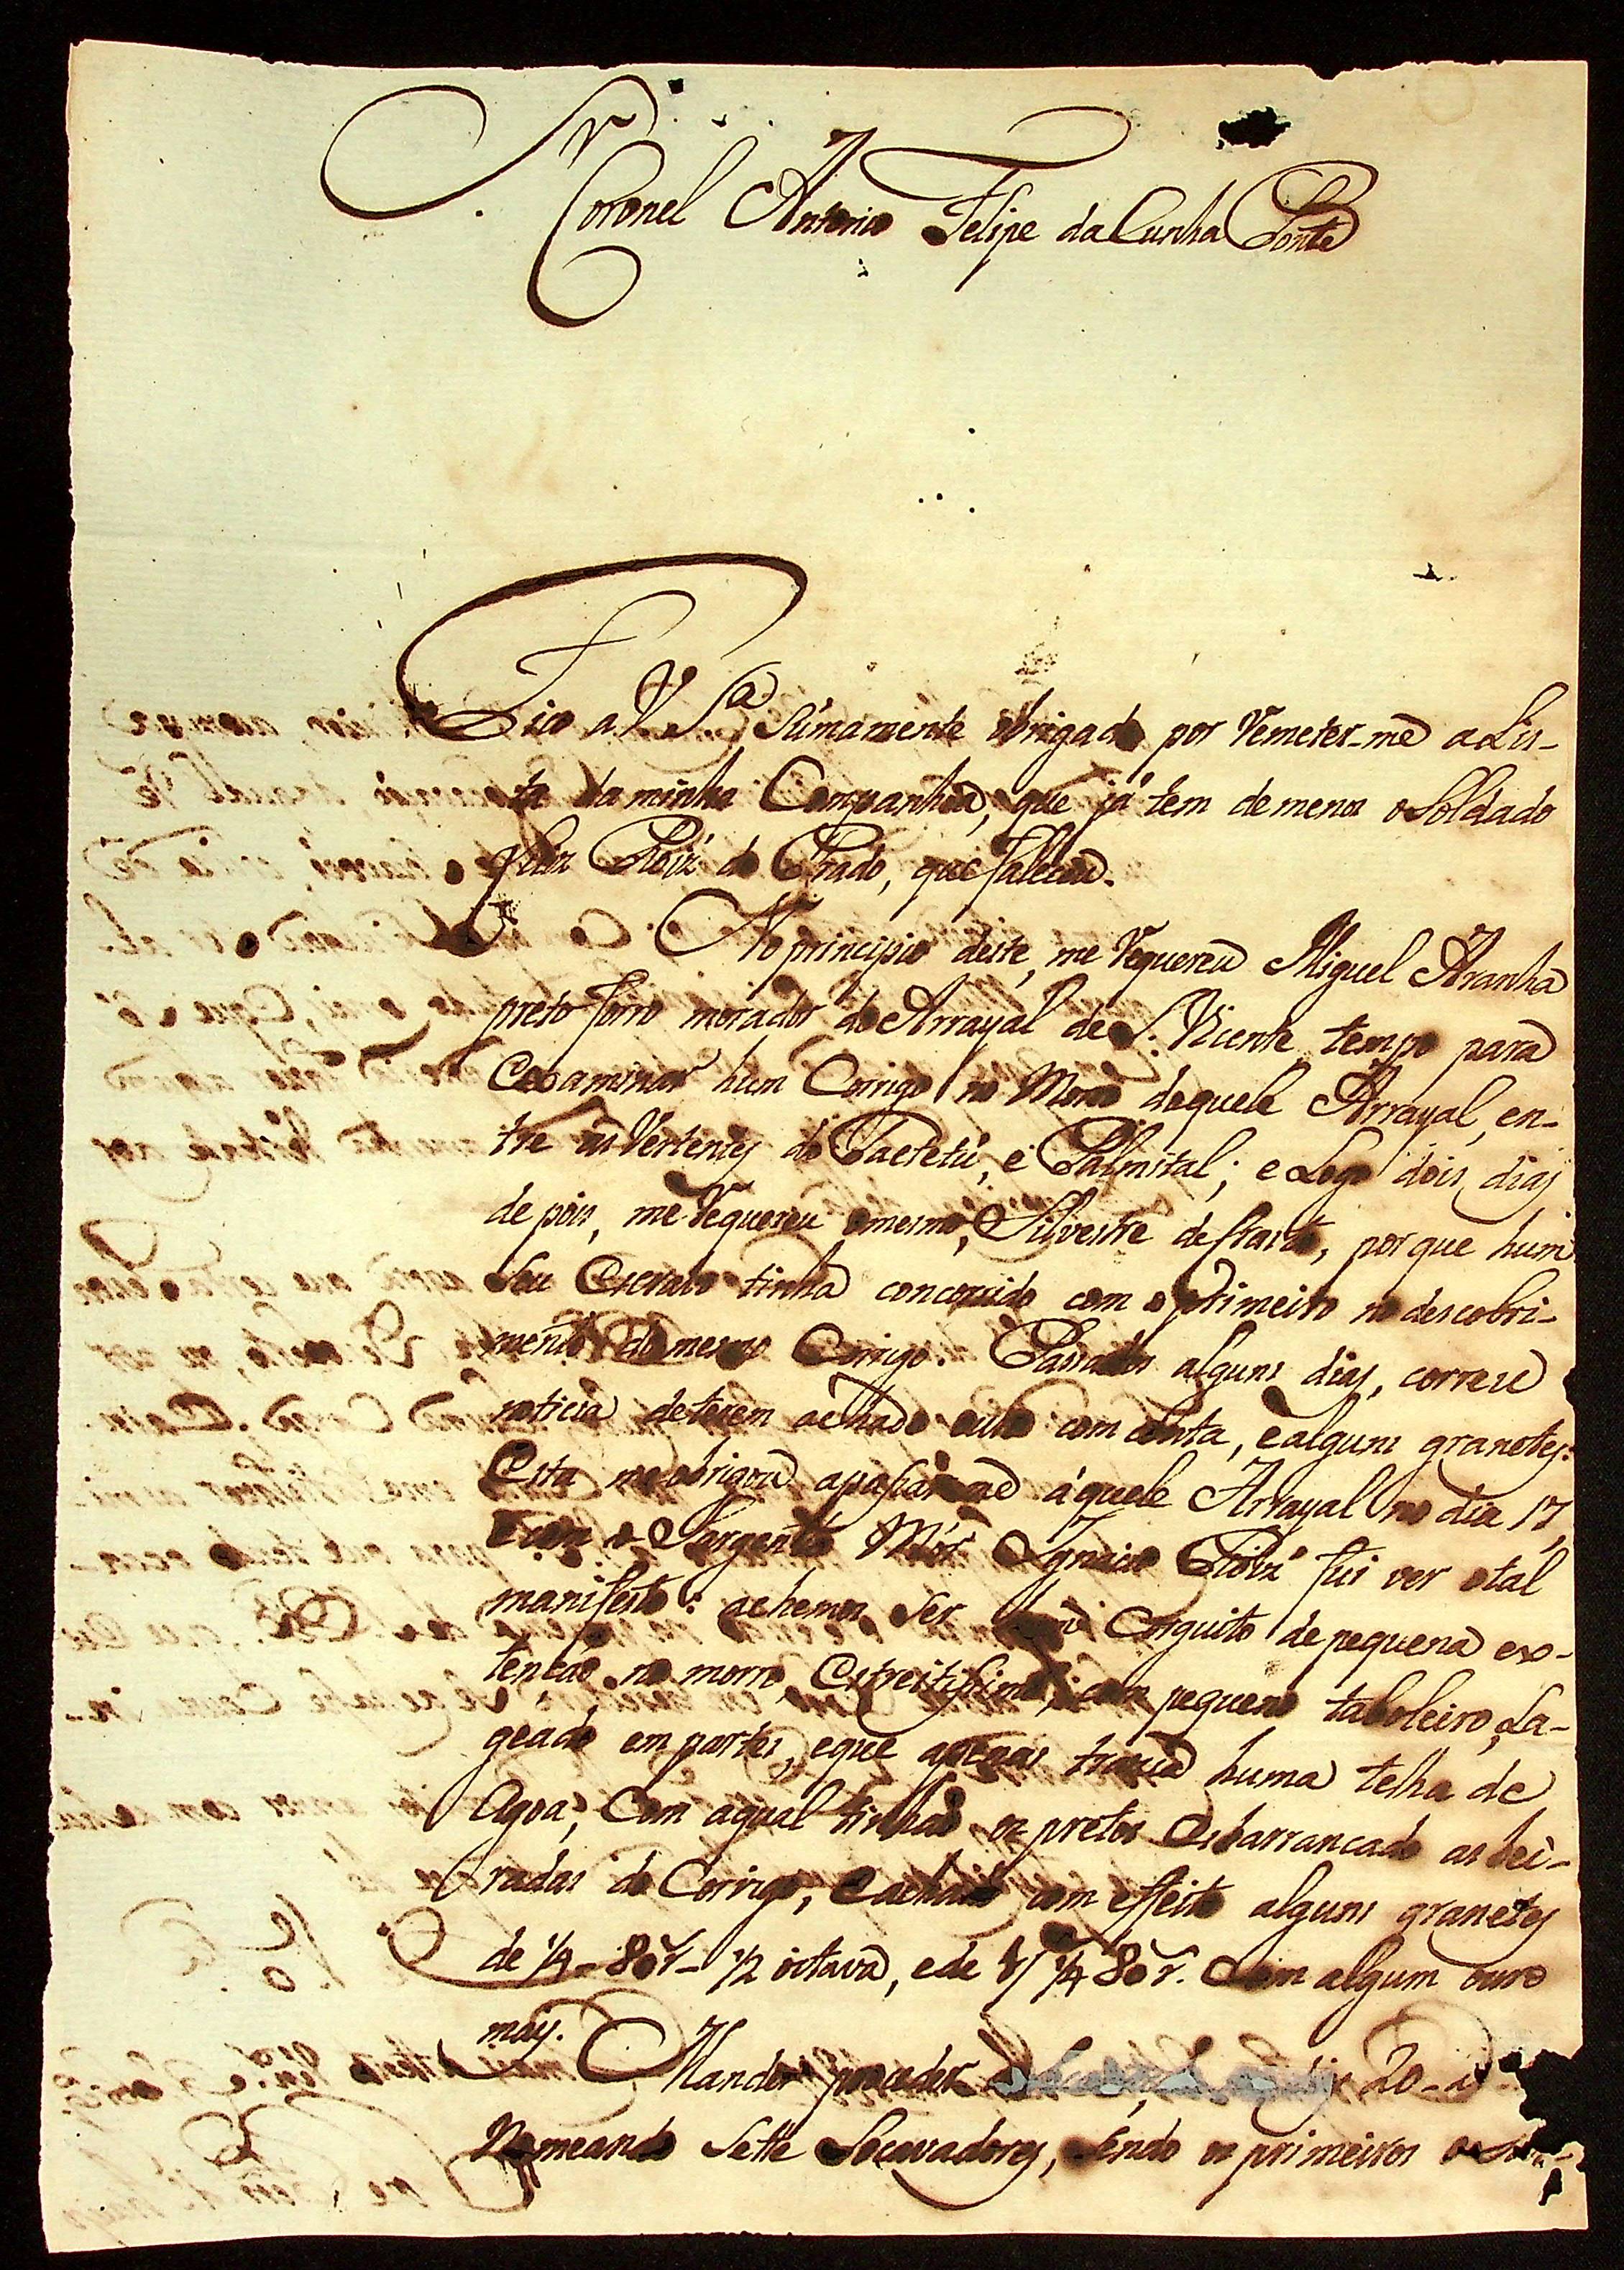 Sr.
Coronel Antonio Felipe da Cunha Ponte
Fico a V. S.ª sumamente obrigado por remeter-me a Lis-
ta da minha Companhia, que já tem de menos o Soldado
Felix Roiz do Prado, que faleceu.
No principio deste, me requereu Miguel Aranha
preto forro morador do Arrayal de S. Vicente tempo para
examinar hum Corrigo no Morro daquele Arrayal, en-
tre as Vertentes do Taetetú, e Palmital; e Logo dois dias
depois, me requereu o mesmo, Silvestre de, por que hum
seu Escravo tinha concorrido com o primeiro no descobri-
mento do mesmo Corrigo. Passados alguns dias, correu
noticia de terem achado ouro com conta, e alguns granetes:
Esta me obrigou apassar-me áquele Arrayal no dia 17,
e com o Sargento Mór Ignacio Roiz fui ver o tal
manifesto: achemos ser hum Corguito de pequena ex-
tenção no morro, Estreitissimo, com pequeno taboleiro, La-
geado em partes, e que apenas trazia huma telha de
Agoa; Com a qual tinhão os pretos Esbarrancado as bei-
radas do Corrigo, e achado com effeito alguns granetes
de 1/4 - 80r - 1/2 octava, e de 1/4 80r. Com algum ouro
mais.
Mandei proceder 20
Nomeando Sette Socavadores, sendo os primeiros